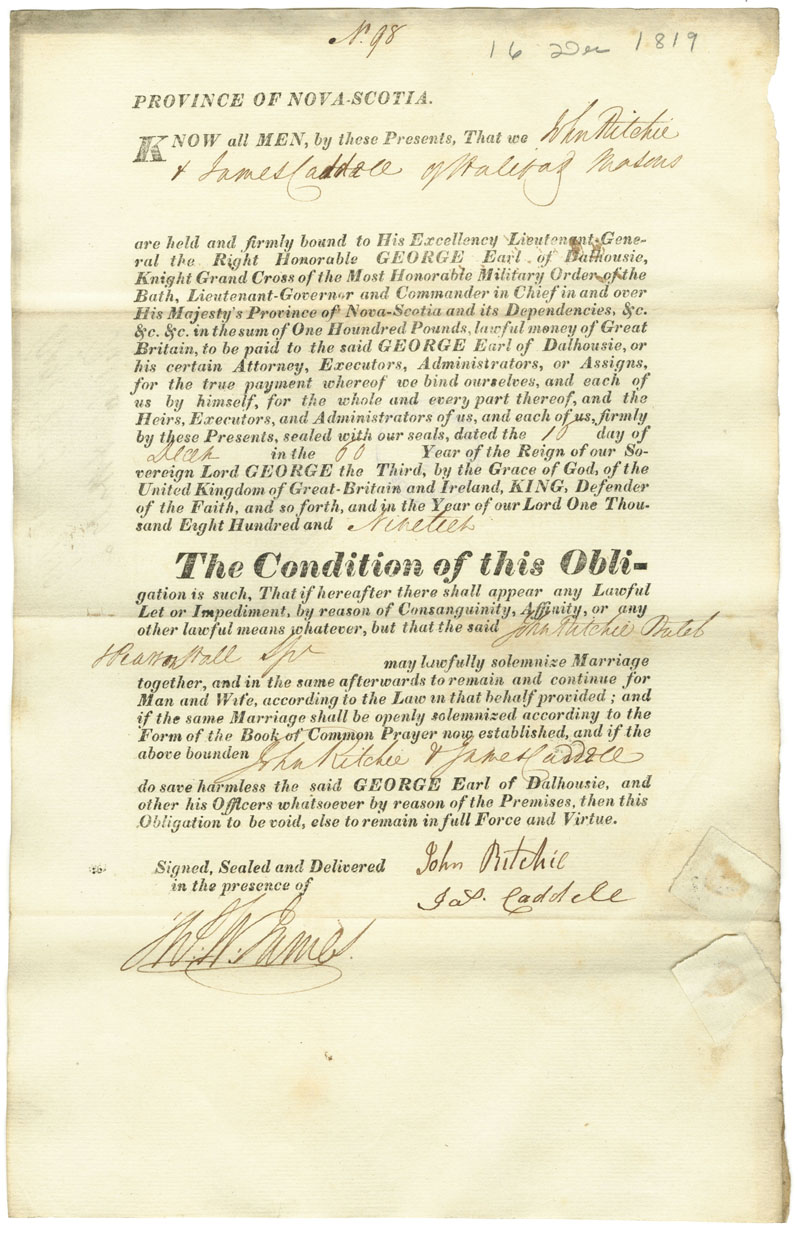 No. 98
16 Dec 1819
PROVINCE OF NOVA-SCOTIA.
KNOW all MEN, by these Presents, That we John Ritchie
& James Caddell of Halifax Masons
are held and firmly bound to His Excellency Lieutenant-Gene-
ral the Right Honorable GEORGE Earl of Dalhousie,
Knight Grand Cross of the Most Honorable Military Order of the
Bath, Lieutenant-Governor and Commander in Chief in and over
His Majesty's Province of Nova-Scotia and its Dependencies, &c.
&c. &c. in the sum of One Houndred Pounds, lawful money of Great
Britain, to be paid to the said GEORGE Earl of Dalhousie, or
his certain Attorney, Executors, Administrators, or Assigns,
for the true payment whereof we bind ourselves, and each of
us by himself, for the whole and every part thereof, and the
Heirs, Executors, and Administrators of us, and each of us, firmly
by these Presents, sealed with our seals, dated the day of
Decem in the 60 Year of the Reign of our So-
vereign Lord GEORGE the Third, by the Grace of God, of the
United Kingdom of Great-Britain and Ireland, KING, Defender
of the Faith, and so forth, and in the Year of our Lord One Thou-
sand Eight Hundred and Nineteen
The Condition of this Obli-
gation is such, That if hereafter there shall appear any Lawful
Let or Impediment, by reason of Consanguinity, Affinity, or any
other lawful means whatever, but that the said John Ritchie
Spr may lawfully solemnize Marriage
together, and in the same afterwards to remain and continue for
Man and Wife, according to the Law in that behalf provided; and
if the same Marriage shall be openly solemnized accordiny to the
Form of the Book of Common Prayer now established, and if the
above bounden John Ritchie & James Caddell
do save harmless the said GEORGE Earl of Dalhousie, and
other his Officers whatsoever by reason of the Premises, then this
Obligation to be void, else to remain in full Force and Virtue.
Signed, Sealed and Delivered
in the presence of
John Ritchie
Jas. Caddell
James